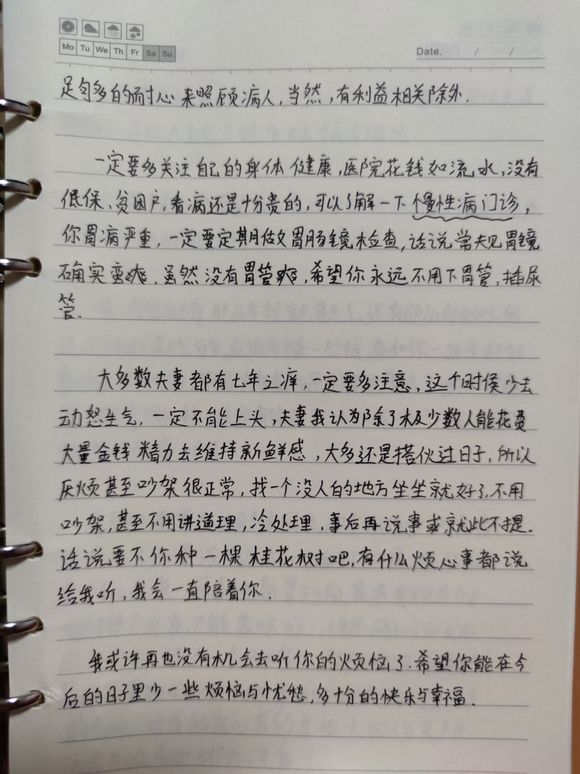 Mo Tu We Th Fr Sa Su
Date. / /
足够多的耐心来照顾病人,当然,有利益相关除外.
一定要多关注自己的身体健康,医院花钱如流水,没有
低保、贫困户,看病还是十分贵的,可以了解一下慢性病门诊,
你胃病严重,一定要定期做胃肠镜检查,话说常规胃镜
确实蛮爽,虽然没有胃管爽,希望你永远不用下胃管,插尿
管.
大多数夫妻都有七年之痒,一定要多注意,这个时候少去
动怒生气,一定不能上头,夫妻我认为除了极少数人能花费
大量金钱精力去维持新鲜感,大多还是搭伙过日子,所以
厌烦甚至吵架很正常,找一个没人的地方坐坐就好了,不用
吵架,甚至不用讲道理,冷处理,事后再说事或就此不提.
话说要不你种一棵桂花树吧,有什么烦心事都说
给我听,我会一直陪着你.
我或许再也没有机会去听你的烦恼了.希望你能在今
后的日子里少一些烦恼与忧愁,多十分的快乐与幸福.